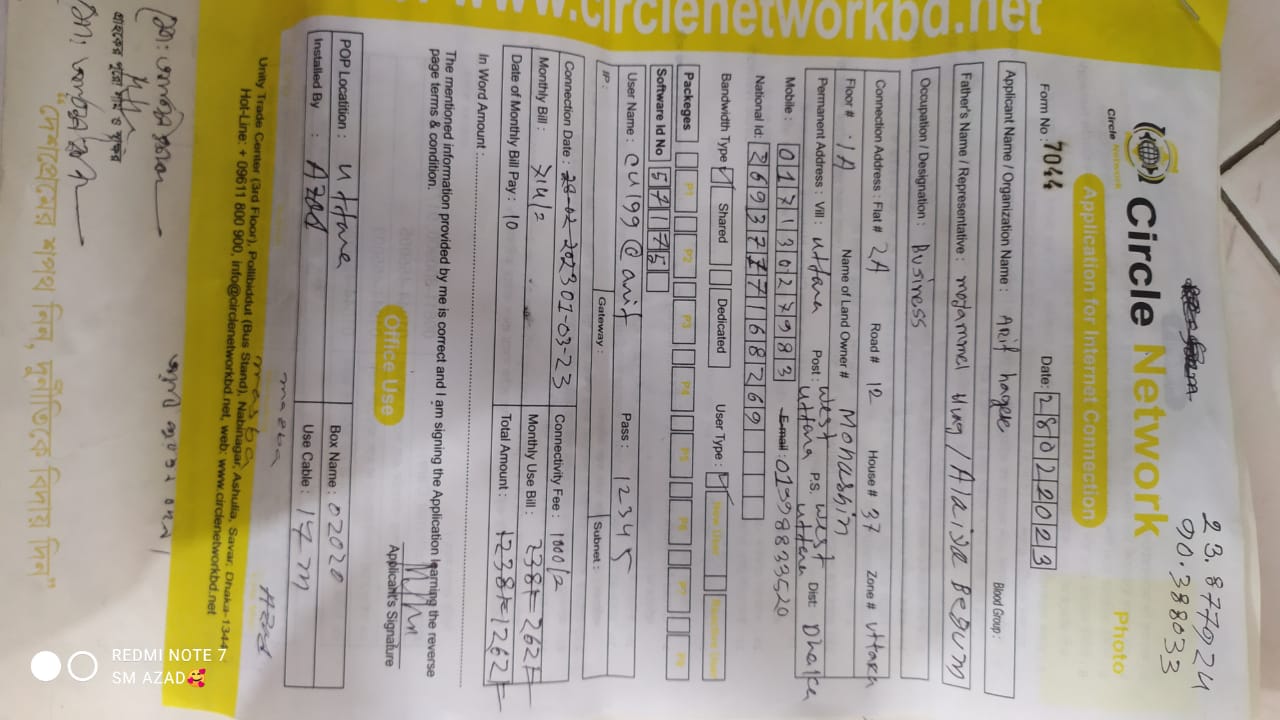 www.circlenetworkbd.net
23.877924
90.388033
Circle Network
Circle Network
Application for Internet Connection
Photo
Form No : 7044
Date: 28022023
Applicant Name / Organization Name : Arif hoqee
Blood Group :
Father's Name / Representative : motammel Huq / Alaija Begum
Occupation / Designation : Business
Connection Address : Flat # 2A Road # 12 House # 37 Zone # uttara
Floor # 1A Name of Land Owner # Mohushin
Permanent Address : Vill : uttara Post : west uttara P.S west uttara Dist: Dhaka
Mobile : 01713027983 E-mail : 01998833520
National Id: 2693777168269
Bandwidth Type Shared Dedicated User Type : New User
Packeges P1 P2 P3 P4 P5 P6 P7 P8
Software Id No 57175
User Name : cu199@arif Pass : 12345
IP : Gateway : Subnet :
Connection Date : 28-02-2023 01-03-23 Connectivity Fee : 1000/=
Monthly Bill : Monthly Use Bill : 238/= 262/=
Date of Monthly Bill Pay : 10 Total Amount : 1238/= 1262/=
In Word Amount :
The mentioned information provided by me is correct and I am signing the Application learning the reverse
page terms & condition.
Applicant's Signature
Office Use
POP Location : uttara Box Name : 02020
Installed By : Azad Use Cable : 17 m
Unity Trade Center (3rd Floor), Pollibiddut (Bus Stand), Nabinagar, Ashulia, Savar, Dhaka-1344
Hot-Line: + 09611 800 900, info@circlenetworkbd.net, web: www.circlenetworkbd.net
গ্রাহকের পুরো নাম ও স্বাক্ষর
"দেশপ্রেমের শপথ নিন, দুর্নীতিকে বিদায় দিন"
REDMI NOTE 7
SM AZAD🥰